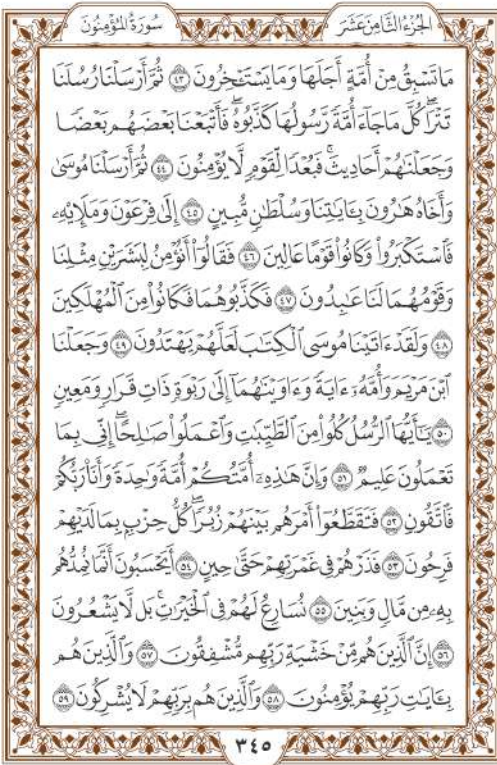 سُورَةُ المُؤْمِنُونَ الجُزْءُ الثَّامِنَ عَشَرَ
مَا تَسْبِقُ مِنْ أُمَّةٍ أَجَلَهَا وَمَا يَسْتَـْٔخِرُونَ ٤٣ ثُمَّ أَرْسَلْنَا رُسُلَنَا
تَتْرَاۖ كُلَّ مَا جَآءَ أُمَّةً رَّسُولُهَا كَذَّبُوهُۖ فَأَتْبَعْنَا بَعْضَهُم بَعْضًا
وَجَعَلْنَٰهُمْ أَحَادِيثَۚ فَبُعْدًا لِّقَوْمٍ لَّا يُؤْمِنُونَ ٤٤ ثُمَّ أَرْسَلْنَا مُوسَىٰ
وَأَخَاهُ هَٰرُونَ بِـَٔايَٰتِنَا وَسُلْطَٰنٍ مُّبِينٍ ٤٥ إِلَىٰ فِرْعَوْنَ وَمَلَإِيْهِۦ
فَٱسْتَكْبَرُوا۟ وَكَانُوا۟ قَوْمًا عَالِينَ ٤٦ فَقَالُوٓا۟ أَنُؤْمِنُ لِبَشَرَيْنِ مِثْلِنَا
وَقَوْمُهُمَا لَنَا عَٰبِدُونَ ٤٧ فَكَذَّبُوهُمَا فَكَانُوا۟ مِنَ ٱلْمُهْلَكِينَ
٤٨ وَلَقَدْ ءَاتَيْنَا مُوسَى ٱلْكِتَٰبَ لَعَلَّهُمْ يَهْتَدُونَ ٤٩ وَجَعَلْنَا
ٱبْنَ مَرْيَمَ وَأُمَّهُۥٓ ءَايَةً وَءَاوَيْنَٰهُمَآ إِلَىٰ رَبْوَةٍ ذَاتِ قَرَارٍ وَمَعِينٍ
٥٠ يَٰٓأَيُّهَا ٱلرُّسُلُ كُلُوا۟ مِنَ ٱلطَّيِّبَٰتِ وَٱعْمَلُوا۟ صَٰلِحًاۖ إِنِّى بِمَا
تَعْمَلُونَ عَلِيمٌ ٥١ وَإِنَّ هَٰذِهِۦٓ أُمَّتُكُمْ أُمَّةً وَٰحِدَةً وَأَنَا۠ رَبُّكُمْ
فَٱتَّقُونِ ٥٢ فَتَقَطَّعُوٓا۟ أَمْرَهُم بَيْنَهُمْ زُبُرًاۖ كُلُّ حِزْبٍۭ بِمَا لَدَيْهِمْ
فَرِحُونَ ٥٣ فَذَرْهُمْ فِى غَمْرَتِهِمْ حَتَّىٰ حِينٍ ٥٤ أَيَحْسَبُونَ أَنَّمَا نُمِدُّهُم
بِهِۦ مِن مَّالٍ وَبَنِينَ ٥٥ نُسَارِعُ لَهُمْ فِى ٱلْخَيْرَٰتِۚ بَل لَّا يَشْعُرُونَ
٥٦ إِنَّ ٱلَّذِينَ هُم مِّنْ خَشْيَةِ رَبِّهِم مُّشْفِقُونَ ٥٧ وَٱلَّذِينَ هُم
بِـَٔايَٰتِ رَبِّهِمْ يُؤْمِنُونَ ٥٨ وَٱلَّذِينَ هُم بِرَبِّهِمْ لَا يُشْرِكُونَ ٥٩
٣٤٥